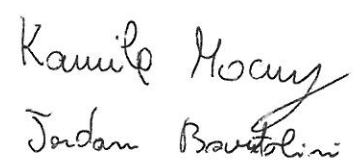 Kamila Mocny
Jordan Bartolini